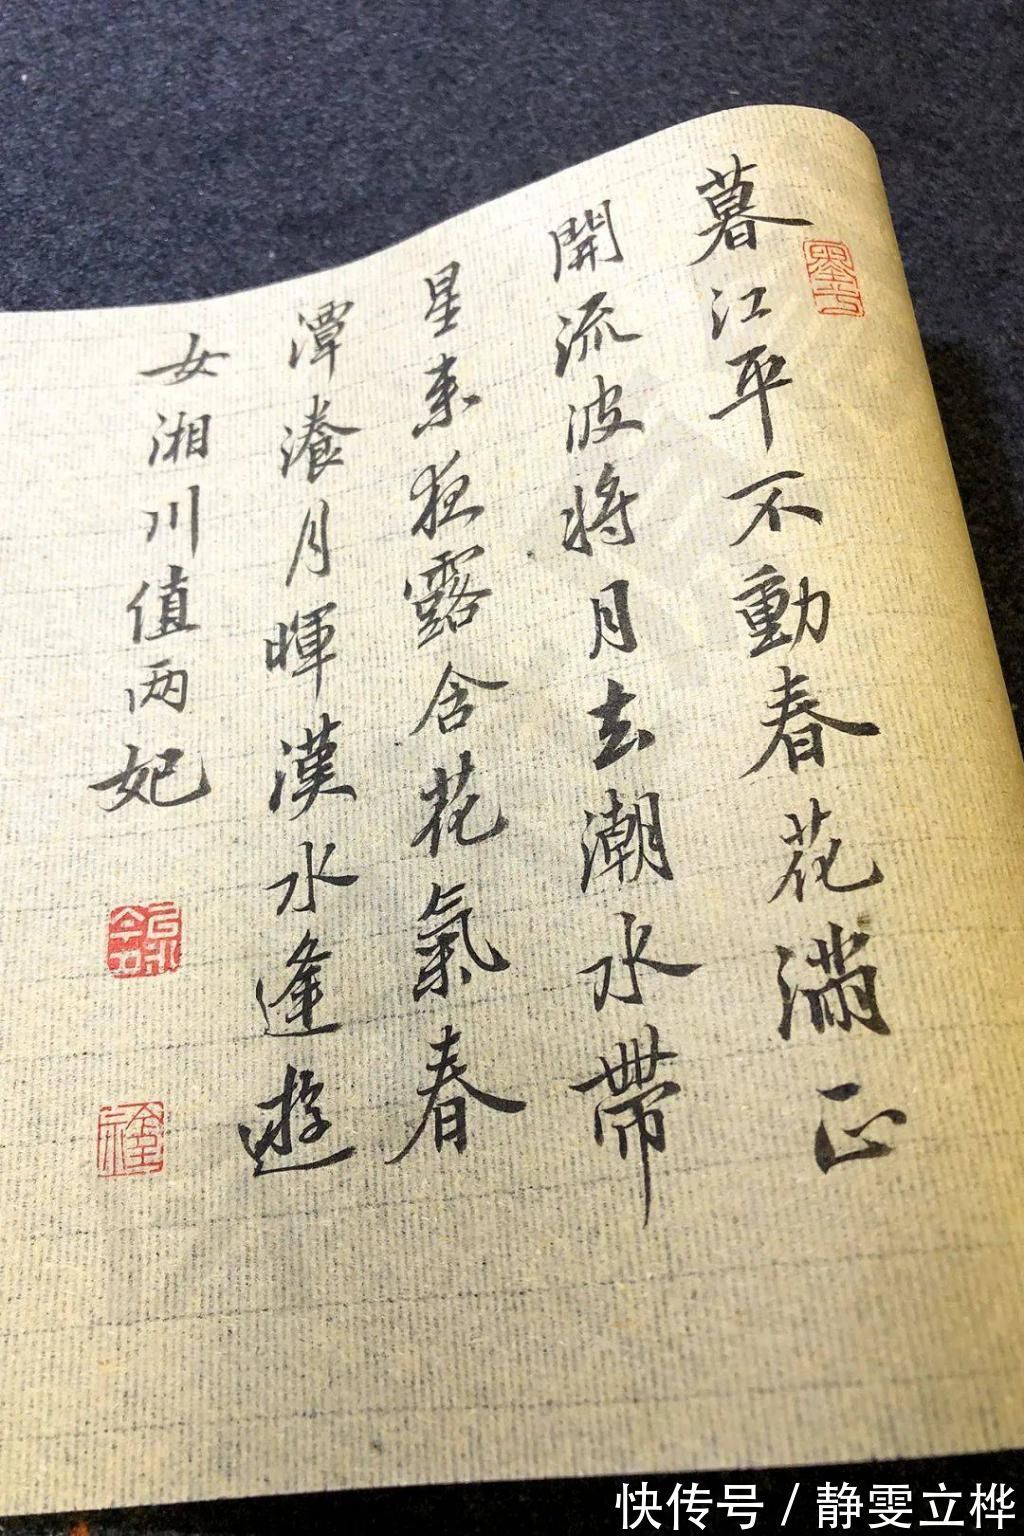 暮江平不動春花滿正
開流波將月去潮水帶
星来夜露含花氣春
潭瀁月暉漢水逢遊
女湘川值两妃
快传号 / 静雯立桦